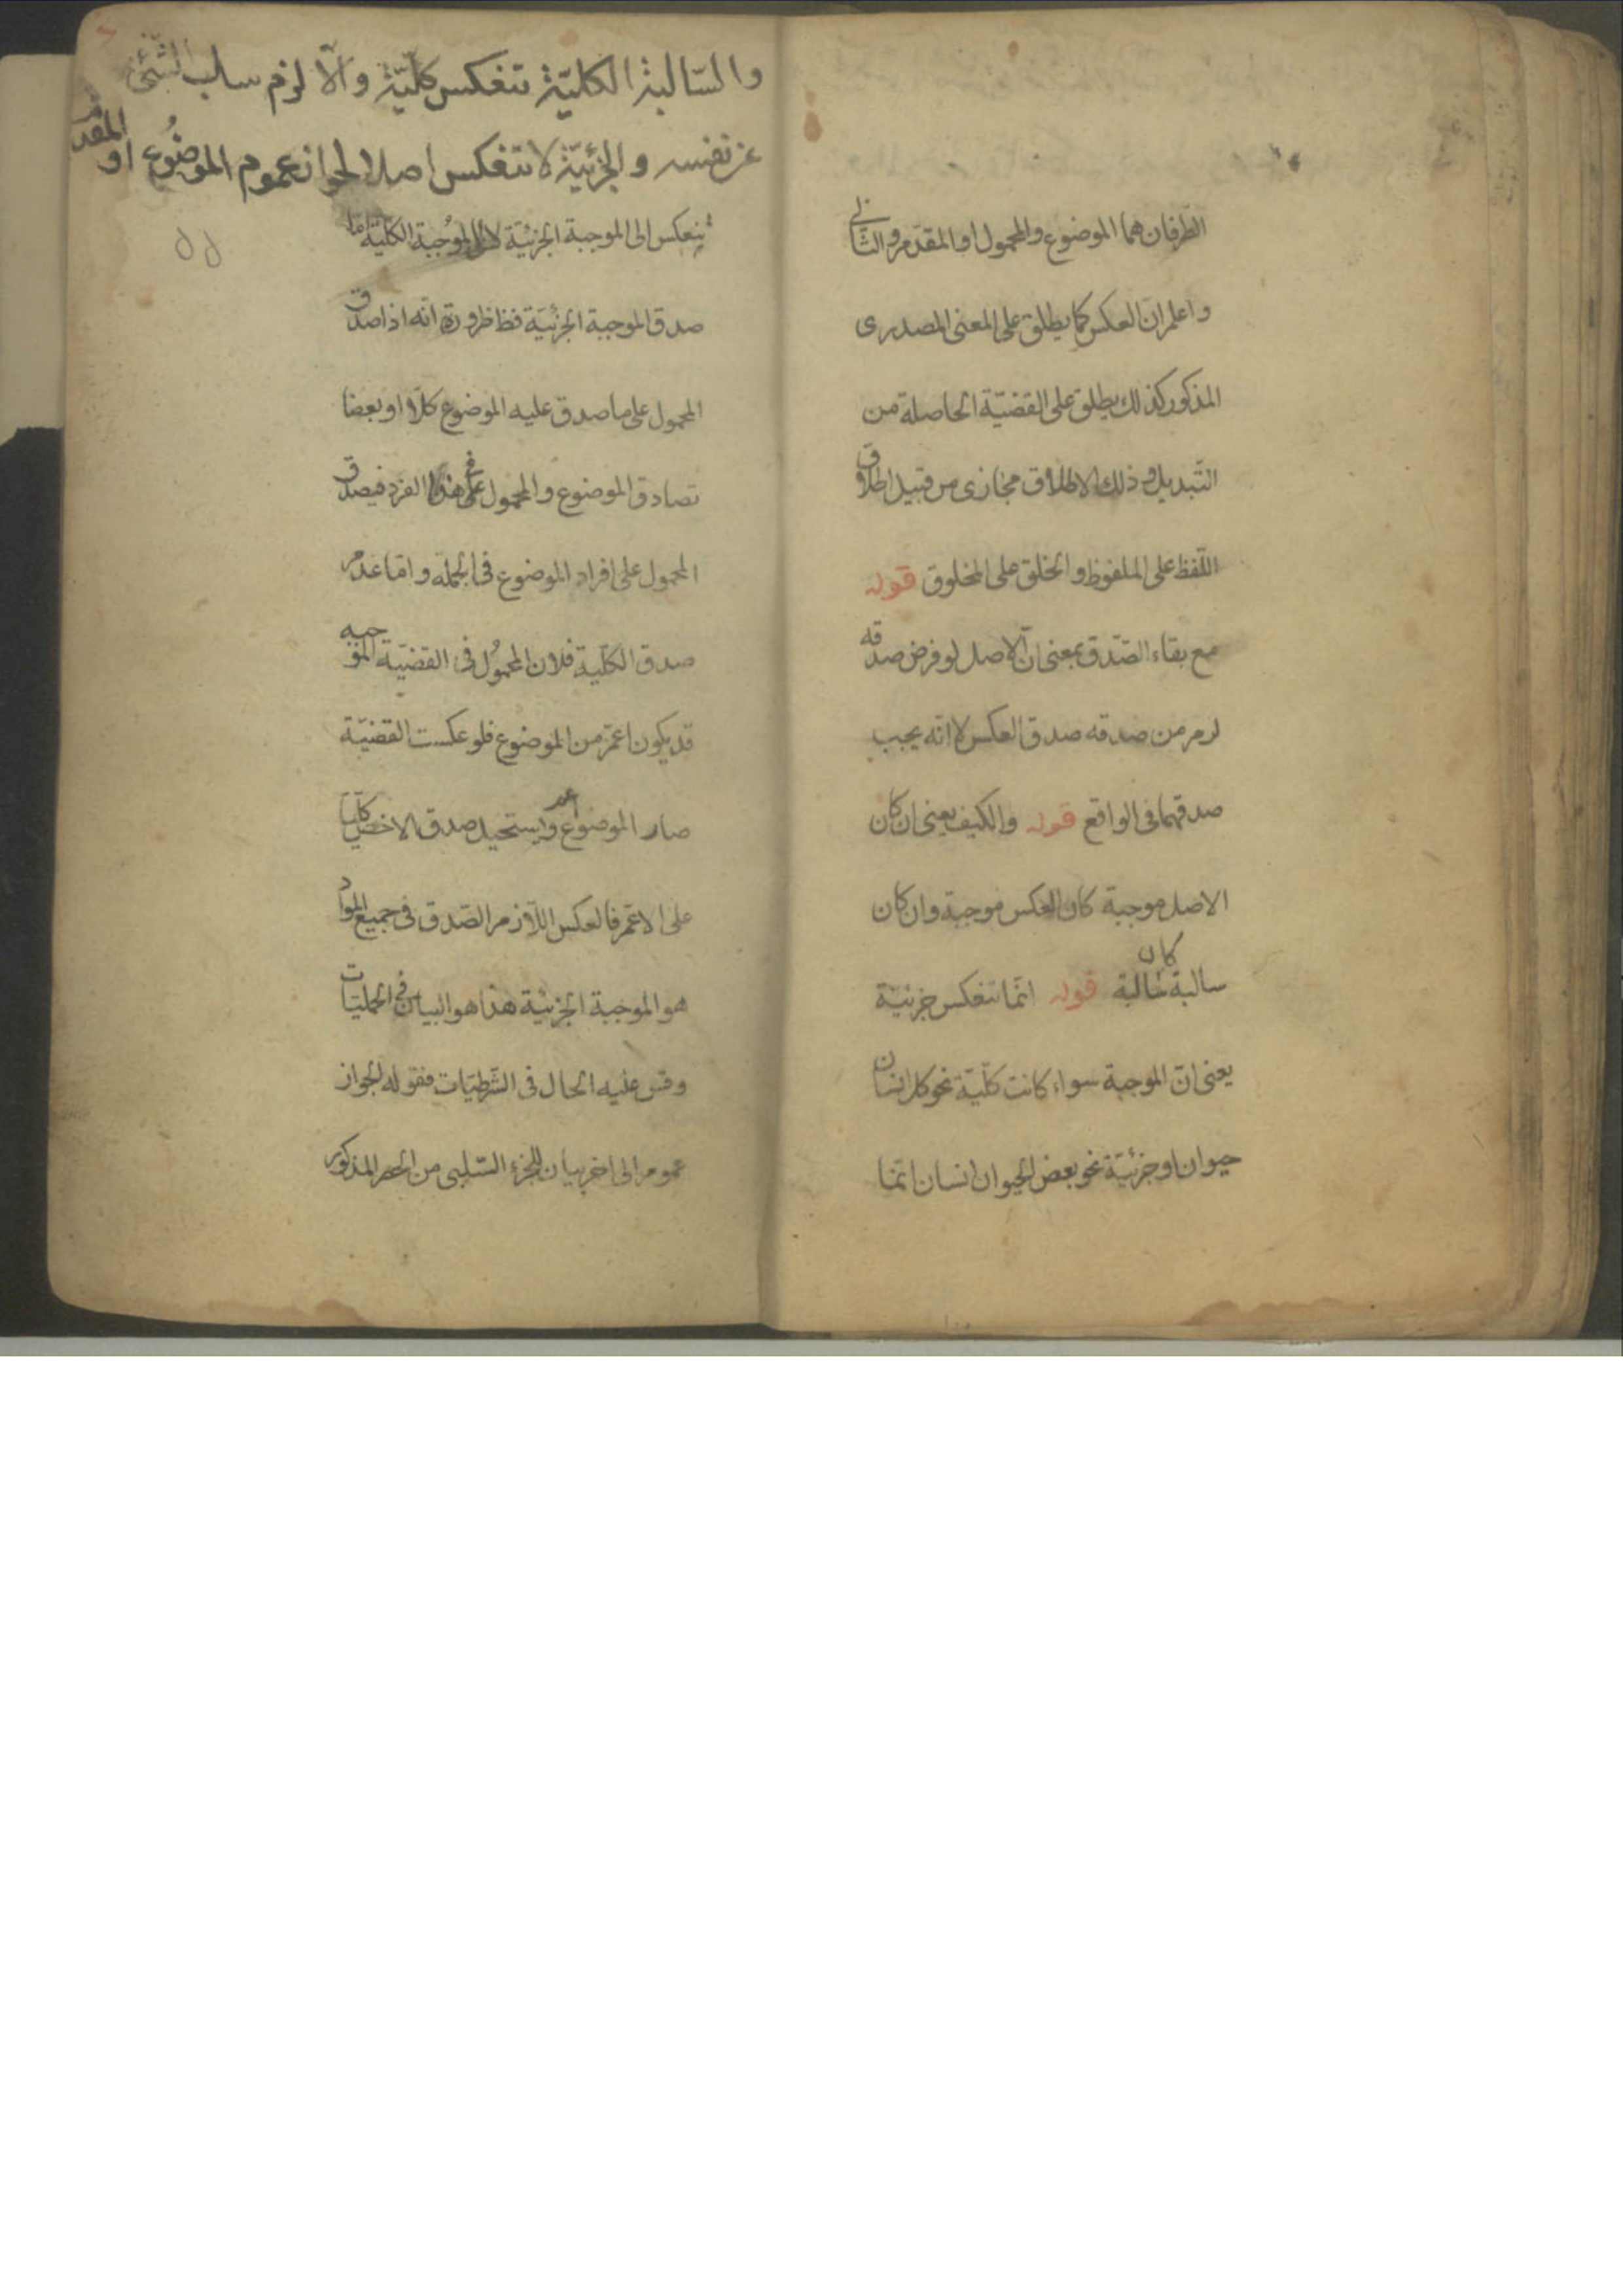 الطّرفان هما الموضوع والمحمول او المقدّم والتّالى
واعلم انّ العكس كما يطلق على المعنى المصدرى
المذكور كذلك يطلق على القضيّة الحاصلة من
التّبديل وذلك الاطلاق مجازى من قبيل اطلاق
اللّفظ على الملفوظ والخلق على المخلوق قوله
مع بقاء الصّدق بمعنى انّ الاصل لو فرض صدقه
لزم من صدقه صدق العكس لا انّه يجب
صدقهما فى الواقع قوله والكيف يعنى ان كان
الاصل موجبة كان العكس موجبة وان كان
سالبة كان سالبة قوله انّما تنعكس جزئيّة
يعنى انّ الموجبة سواء كانت كلّيّة نحو كل انسان
حيوان او جزئيّة نحو بعض الحيوان انسان انّما
والسّالبة الكليّة تنعكس كلّيّة والّا لزم سلب الشّئ
عن نفسه والجزئيّة لا تنعكس اصلا لجواز عموم الموضُوع او المقدّم
ينعكس الى الموجبة الجزئيّة لا الى الموُجبة الكلّيّة امّا
صدق الموجبة الجزئيّة فظ ظرورة انّه اذا صدق
المحمول على ما صدق عليه الموضوع كلّا او بعضا
تصادق الموضوع والمحمول فى هذا الفرد فيصدق
المحمول على افراد الموضوع فى الجملة وامّا عدم
صدق الكلّية فلان المحموُل فى القضيّة الموجبه
قد يكون اعمّ من الموضوع فلو عكست القضيّة
صار الموضوع اعم ويستحيل صدق الاخصّ كليّا
على الاعمّ فالعكس اللّازم الصّدق فى جميع الموادّ
هو الموجبة الجزئيّة هذا هو البيان فى الحمليّات
وقس عليه الحال فى الشّرطيّات فقوله لجواز
عموم الى اخر بيان للجزء السّلبى من الحصر المذكور